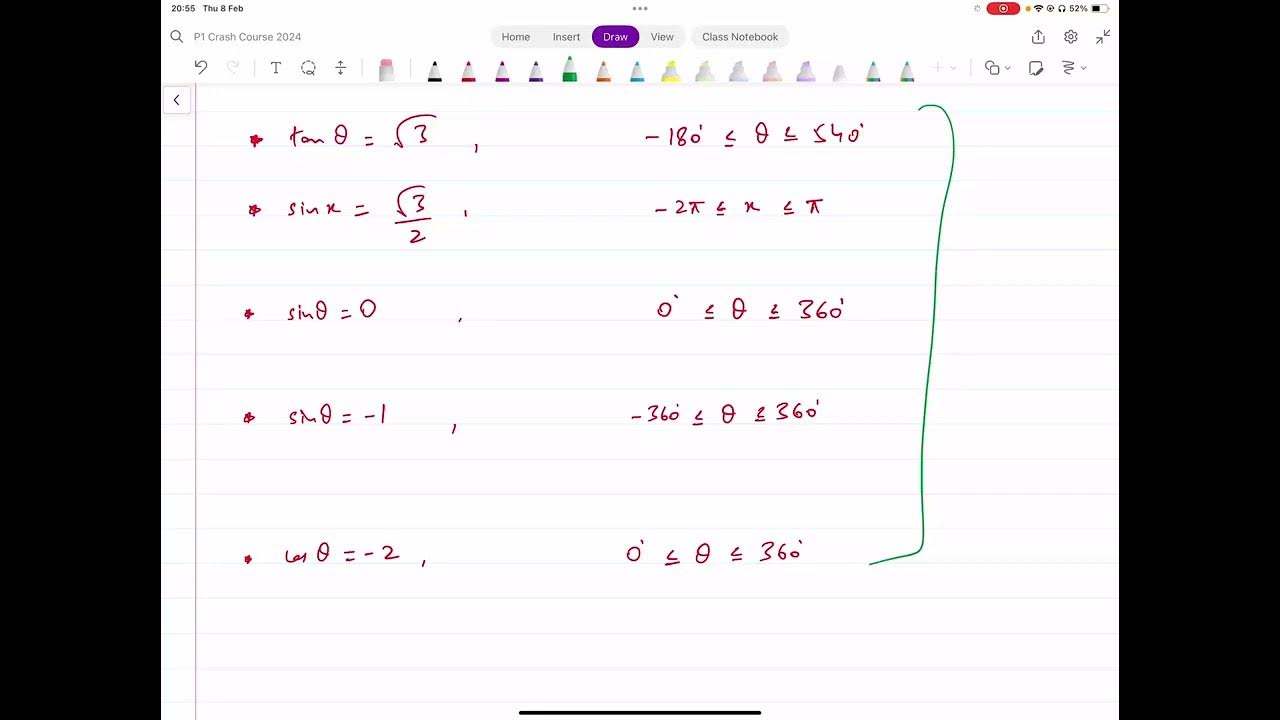 20:55 Thu 8 Feb
52%
P1 Crash Course 2024
Home Insert Draw View Class Notebook
T
tan θ = √3 , -180° ≤ θ ≤ 540°
sin x = √3/2 , -2π ≤ x ≤ π
sin θ = 0 , 0° ≤ θ ≤ 360°
sin θ = -1 , -360° ≤ θ ≤ 360°
cos θ = -2 , 0° ≤ θ ≤ 360°